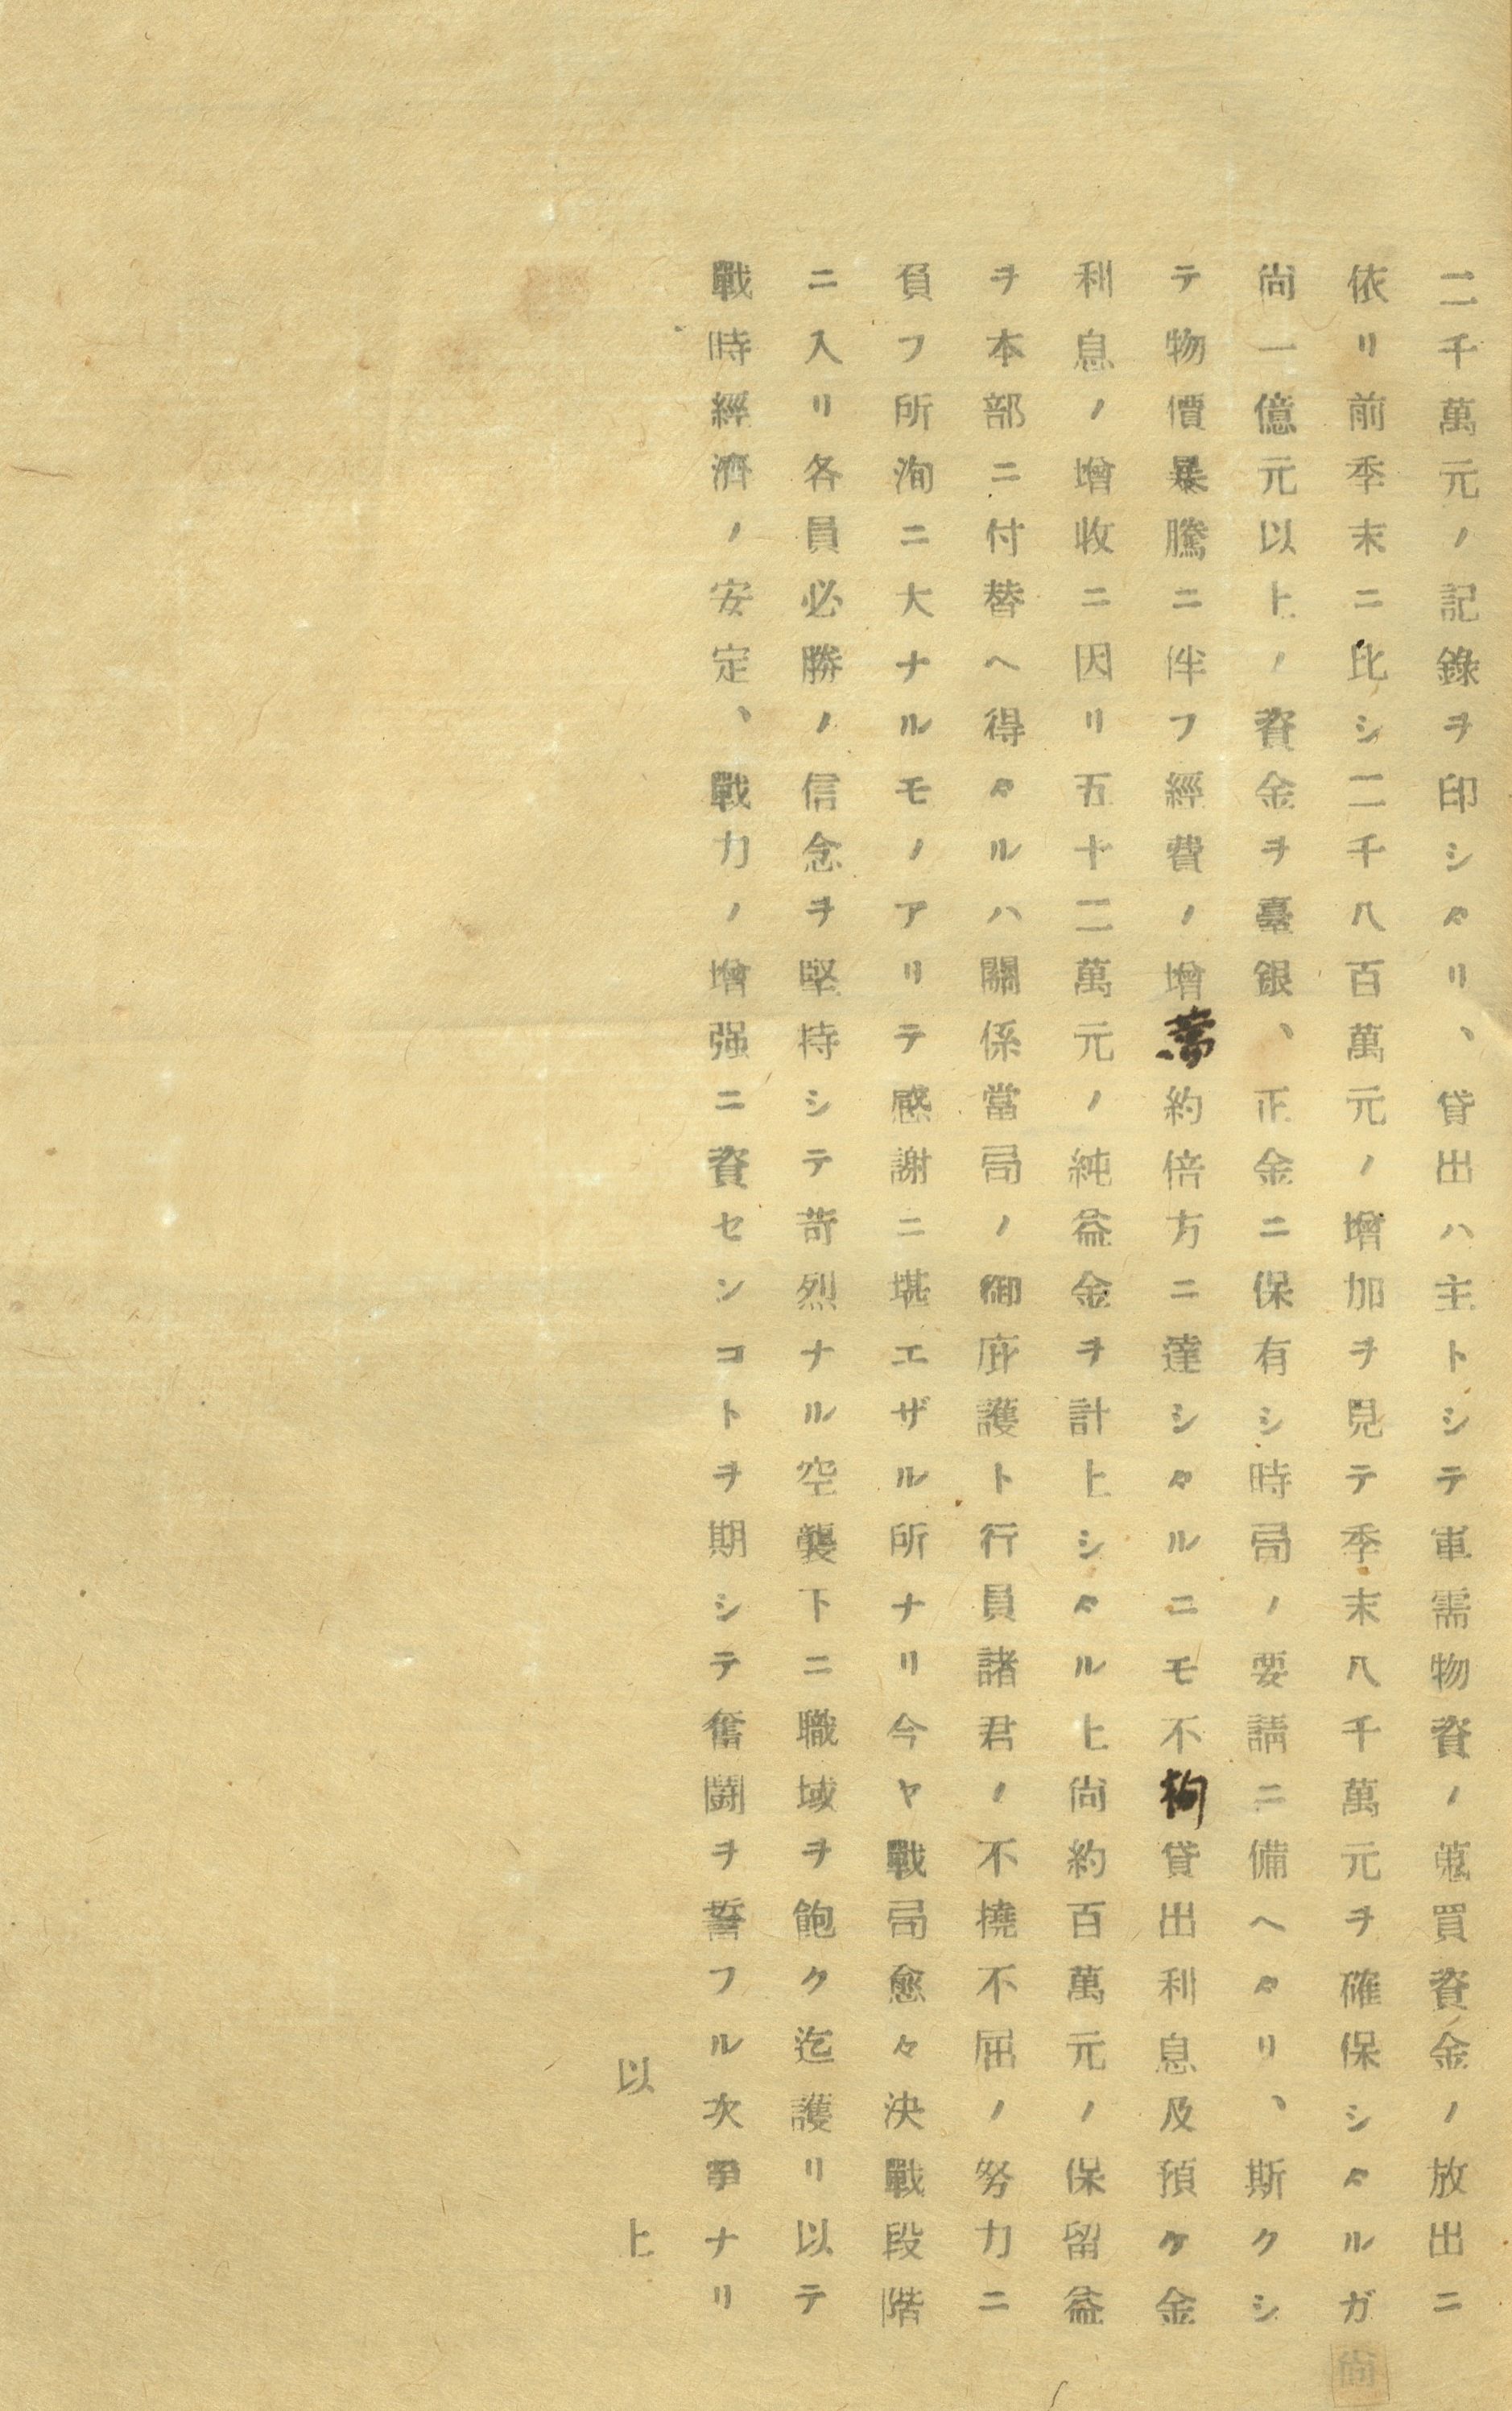 二千萬元ノ記錄ヲ印シタリ、貸出ハ主トシテ軍需物資ノ蒐買資金ノ放出ニ
依リ前季末ニ比シ二千八百萬元ノ增加ヲ見テ季末八千萬元ヲ確保シタルガ尚
尚一億元以上ノ資金ヲ臺銀、正金ニ保有シ時局ノ要請ニ備ヘタリ、斯クシ
テ物價暴騰ニ伴フ經費ノ增嵩約倍方ニ達シタルニモ不拘貸出利息及預ケ金
利息ノ增收ニ因リ五十二萬元ノ純益金ヲ計上シタル上尚約百萬元ノ保留益
ヲ本部ニ付替ヘ得タルハ關係當局ノ御庇護ト行員諸君ノ不撓不屈ノ努力ニ
負フ所洵ニ大ナルモノアリテ感謝ニ堪エザル所ナリ今ヤ戰局愈々決戰段階
ニ入リ各員必勝ノ信念ヲ堅持シテ苛烈ナル空襲下ニ職域ヲ飽ク迄護リ以テ
戰時經濟ノ安定、戰力ノ增强ニ資センコトヲ期シテ奮鬪ヲ誓フル次第ナリ
以上